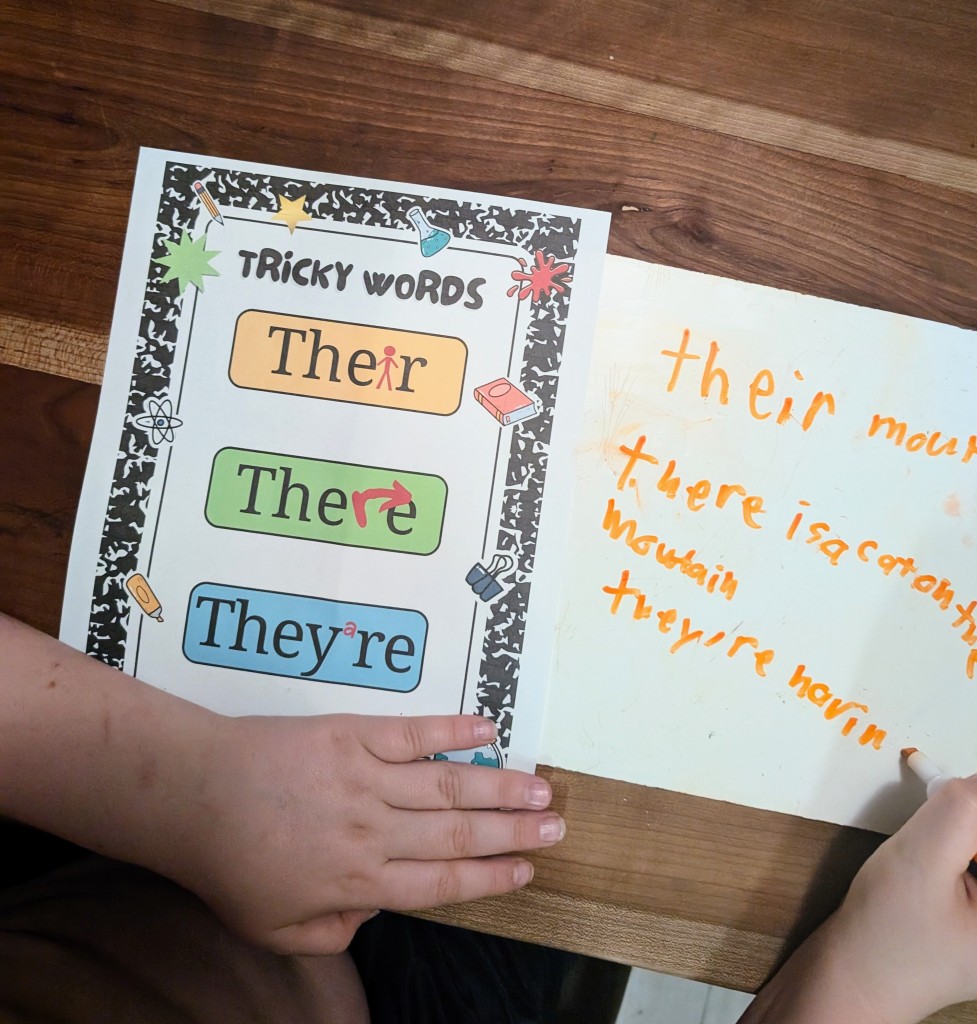 TRICKY WORDS
Their
There
They're
a
their
there is a cat on the
mowtain
they're havin